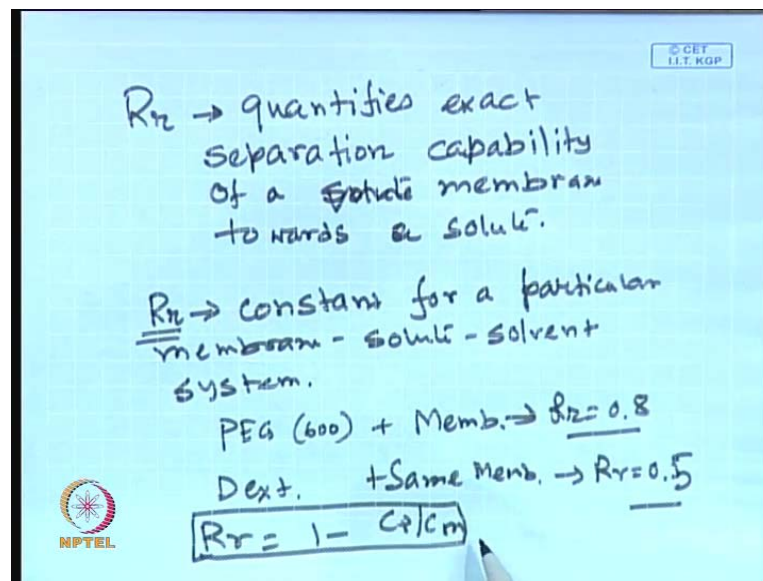 © CET
I.I.T. KGP
Rr → quantifies exact
separation capability
of a solute membran
towards a solute.
Rr → constant for a particular
membran - solute - solvent
system.
PEG (600) + Memb. → Rr = 0.8
Dext. + Same Memb. → Rr = 0.5
Rr = 1 - Cp/Cm
NPTEL